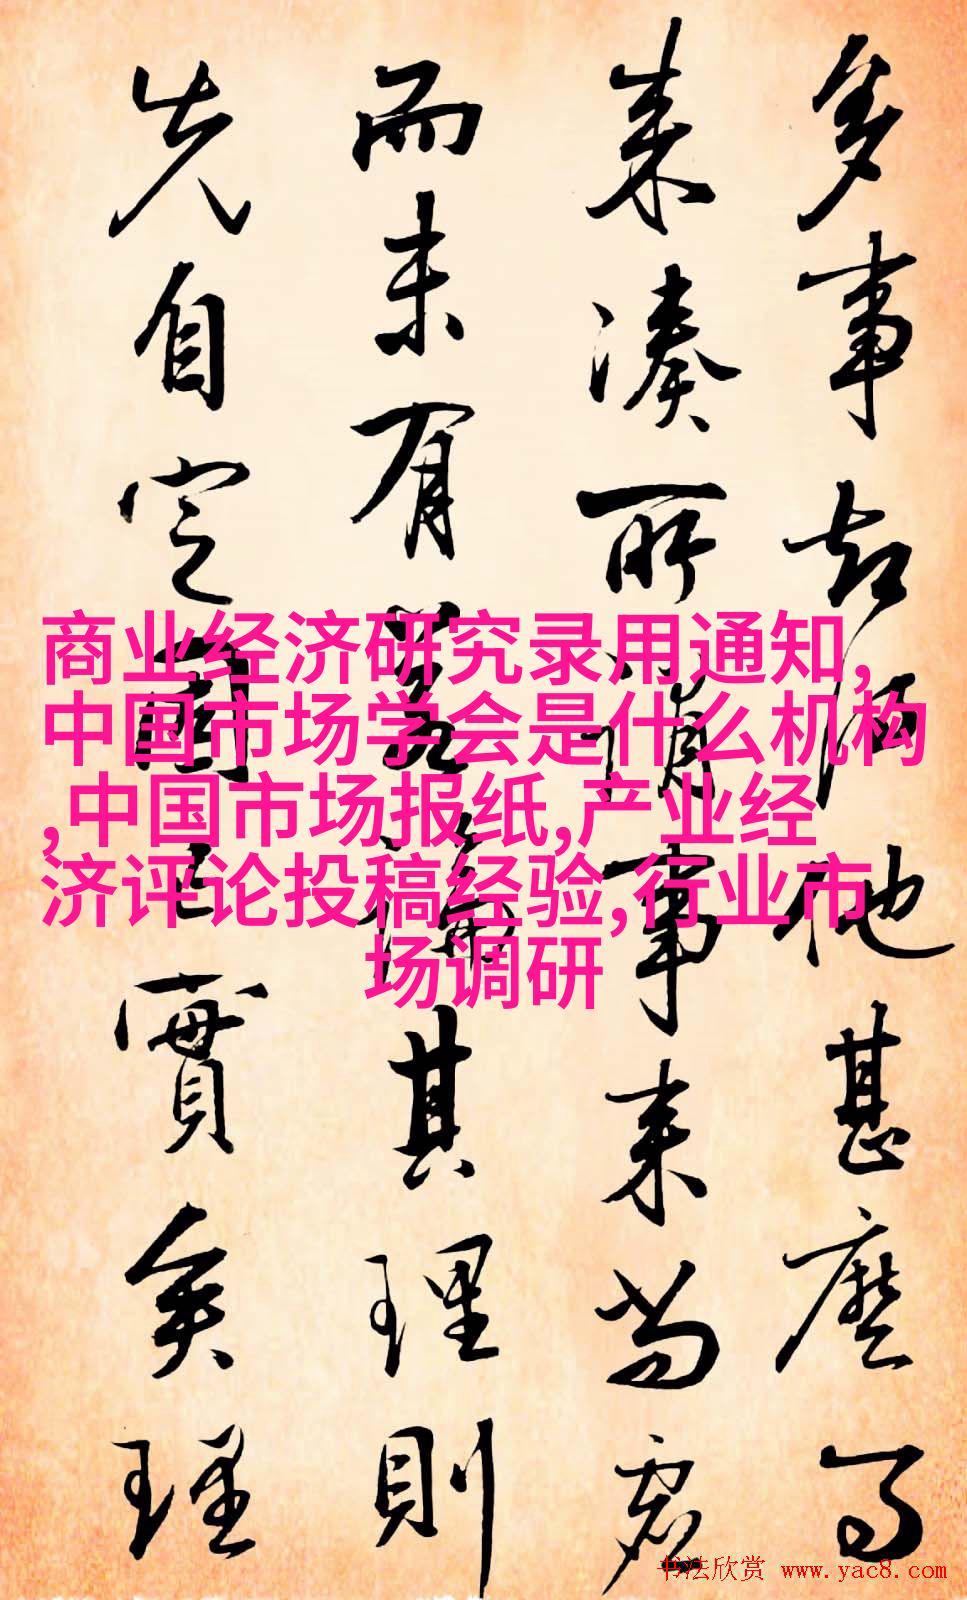 多事知他甚麼了
来湊所谓事来当君
而未有其理則
先自定固已實矣理
商业经济研究录用通知,
中国市场学会是什么机构
,中国市场报纸,产业经
济评论投稿经验,行业市
场调研
书法欣赏 www.yac8.com